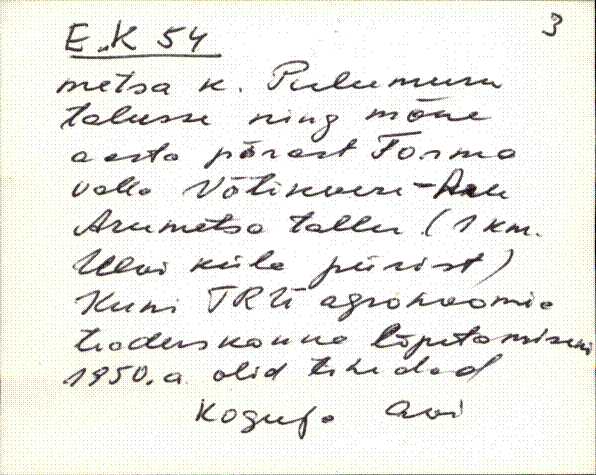 E.K 54
3
metsa k. Pulumuru
talusse ning mõne
aasta pärast Torma
valla Võtikvere-Aru
Arumetsa tallu (1 km.
Ulvi küla piirist)
Kuni TRÜ agronoomia
teaduskonna lõpetamiseni
1950. a. olid tihedad
Koguja Avi